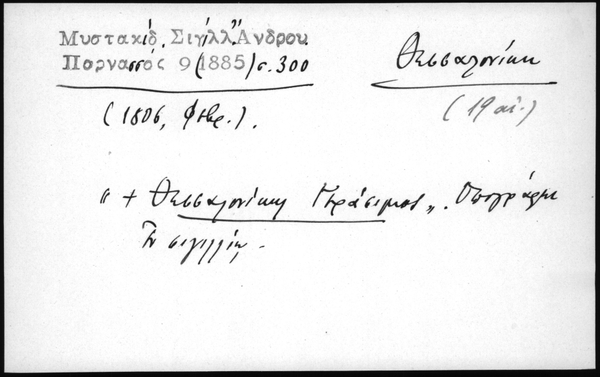 Μυστακίδ. Σιγίλλ. Ἄνδρου
Παρνασσός 9 (1885) σ. 300
Θεσσαλονίκη
(19 αἰ.)
(1806, Φεβρ.).
" + Θεσσαλονίκης Γεράσιμος„. Ὑπογράφει
σιγίλλιον.